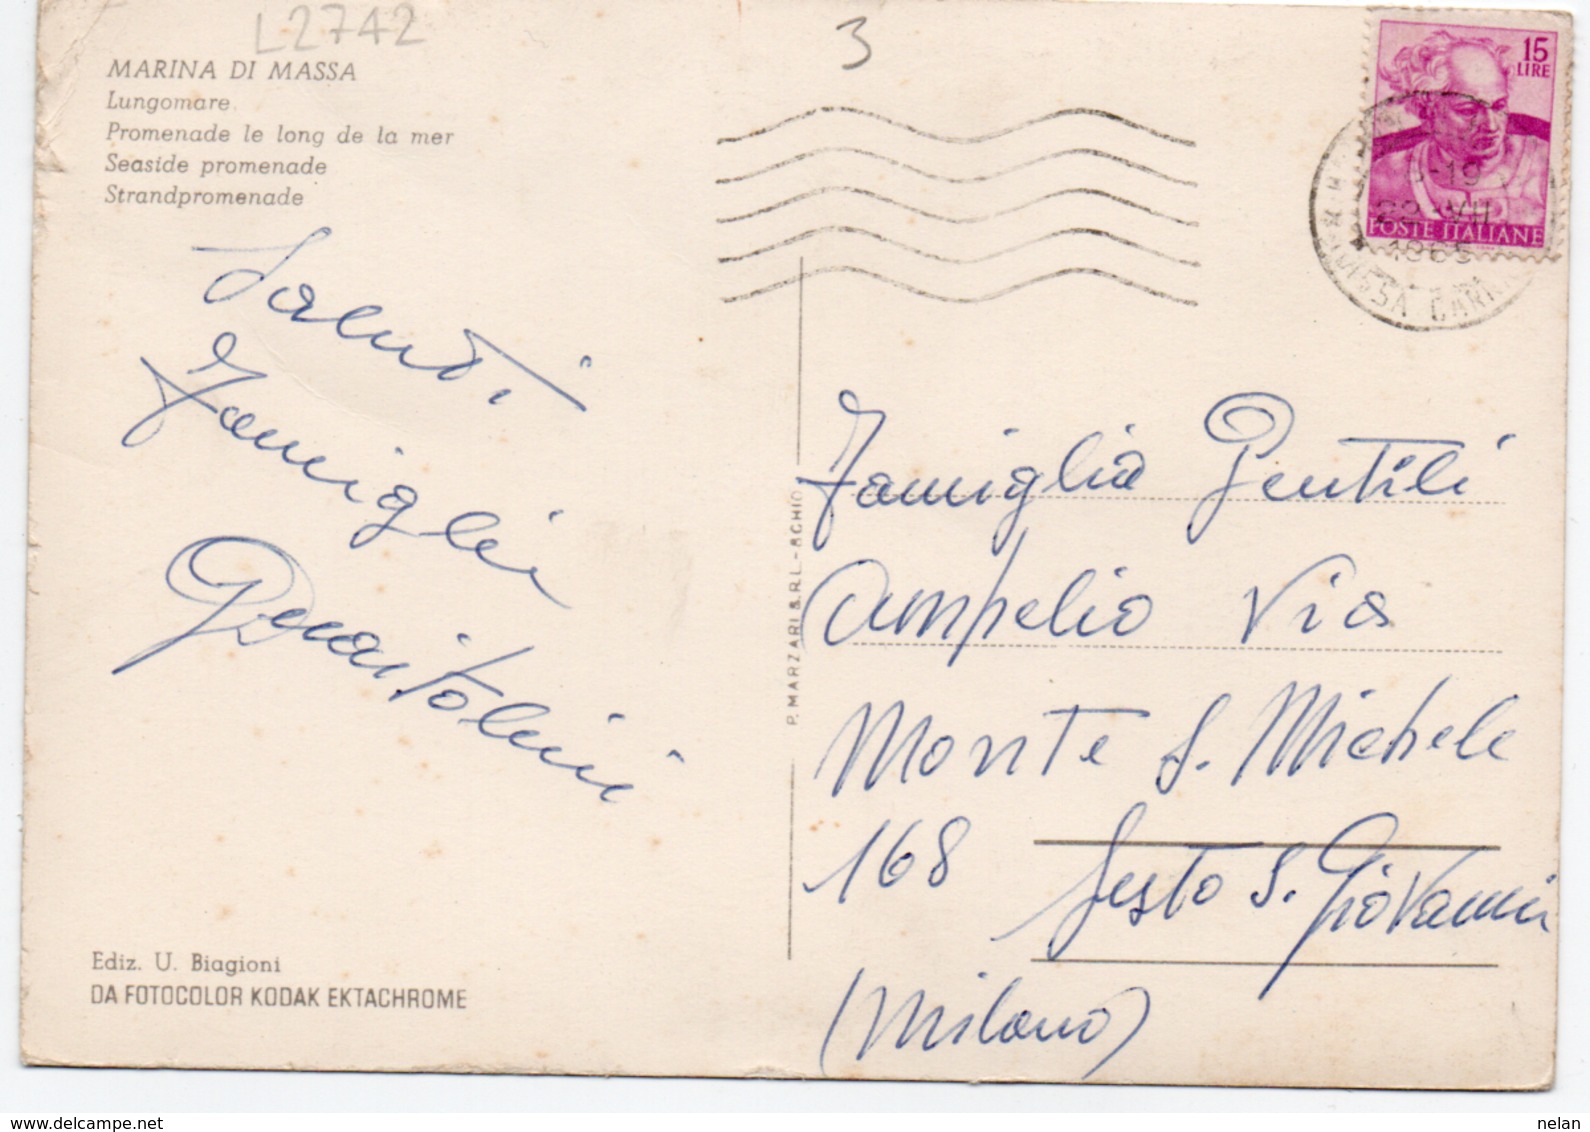 L2742
3
MARINA DI MASSA
Lungomare
Promenade le long de la mer
Seaside promenade
Strandpromenade
15
LIRE
POSTE ITALIANE
VII
Saluti
Famiglia
Famiglia Gentili
Ampelio Via
Monte S. Michele
168 Sesto S. Giovanni
(Milano)
P. MARZARI S.R.L. - SCHIO
Ediz. U. Biagioni
DA FOTOCOLOR KODAK EKTACHROME
nelan